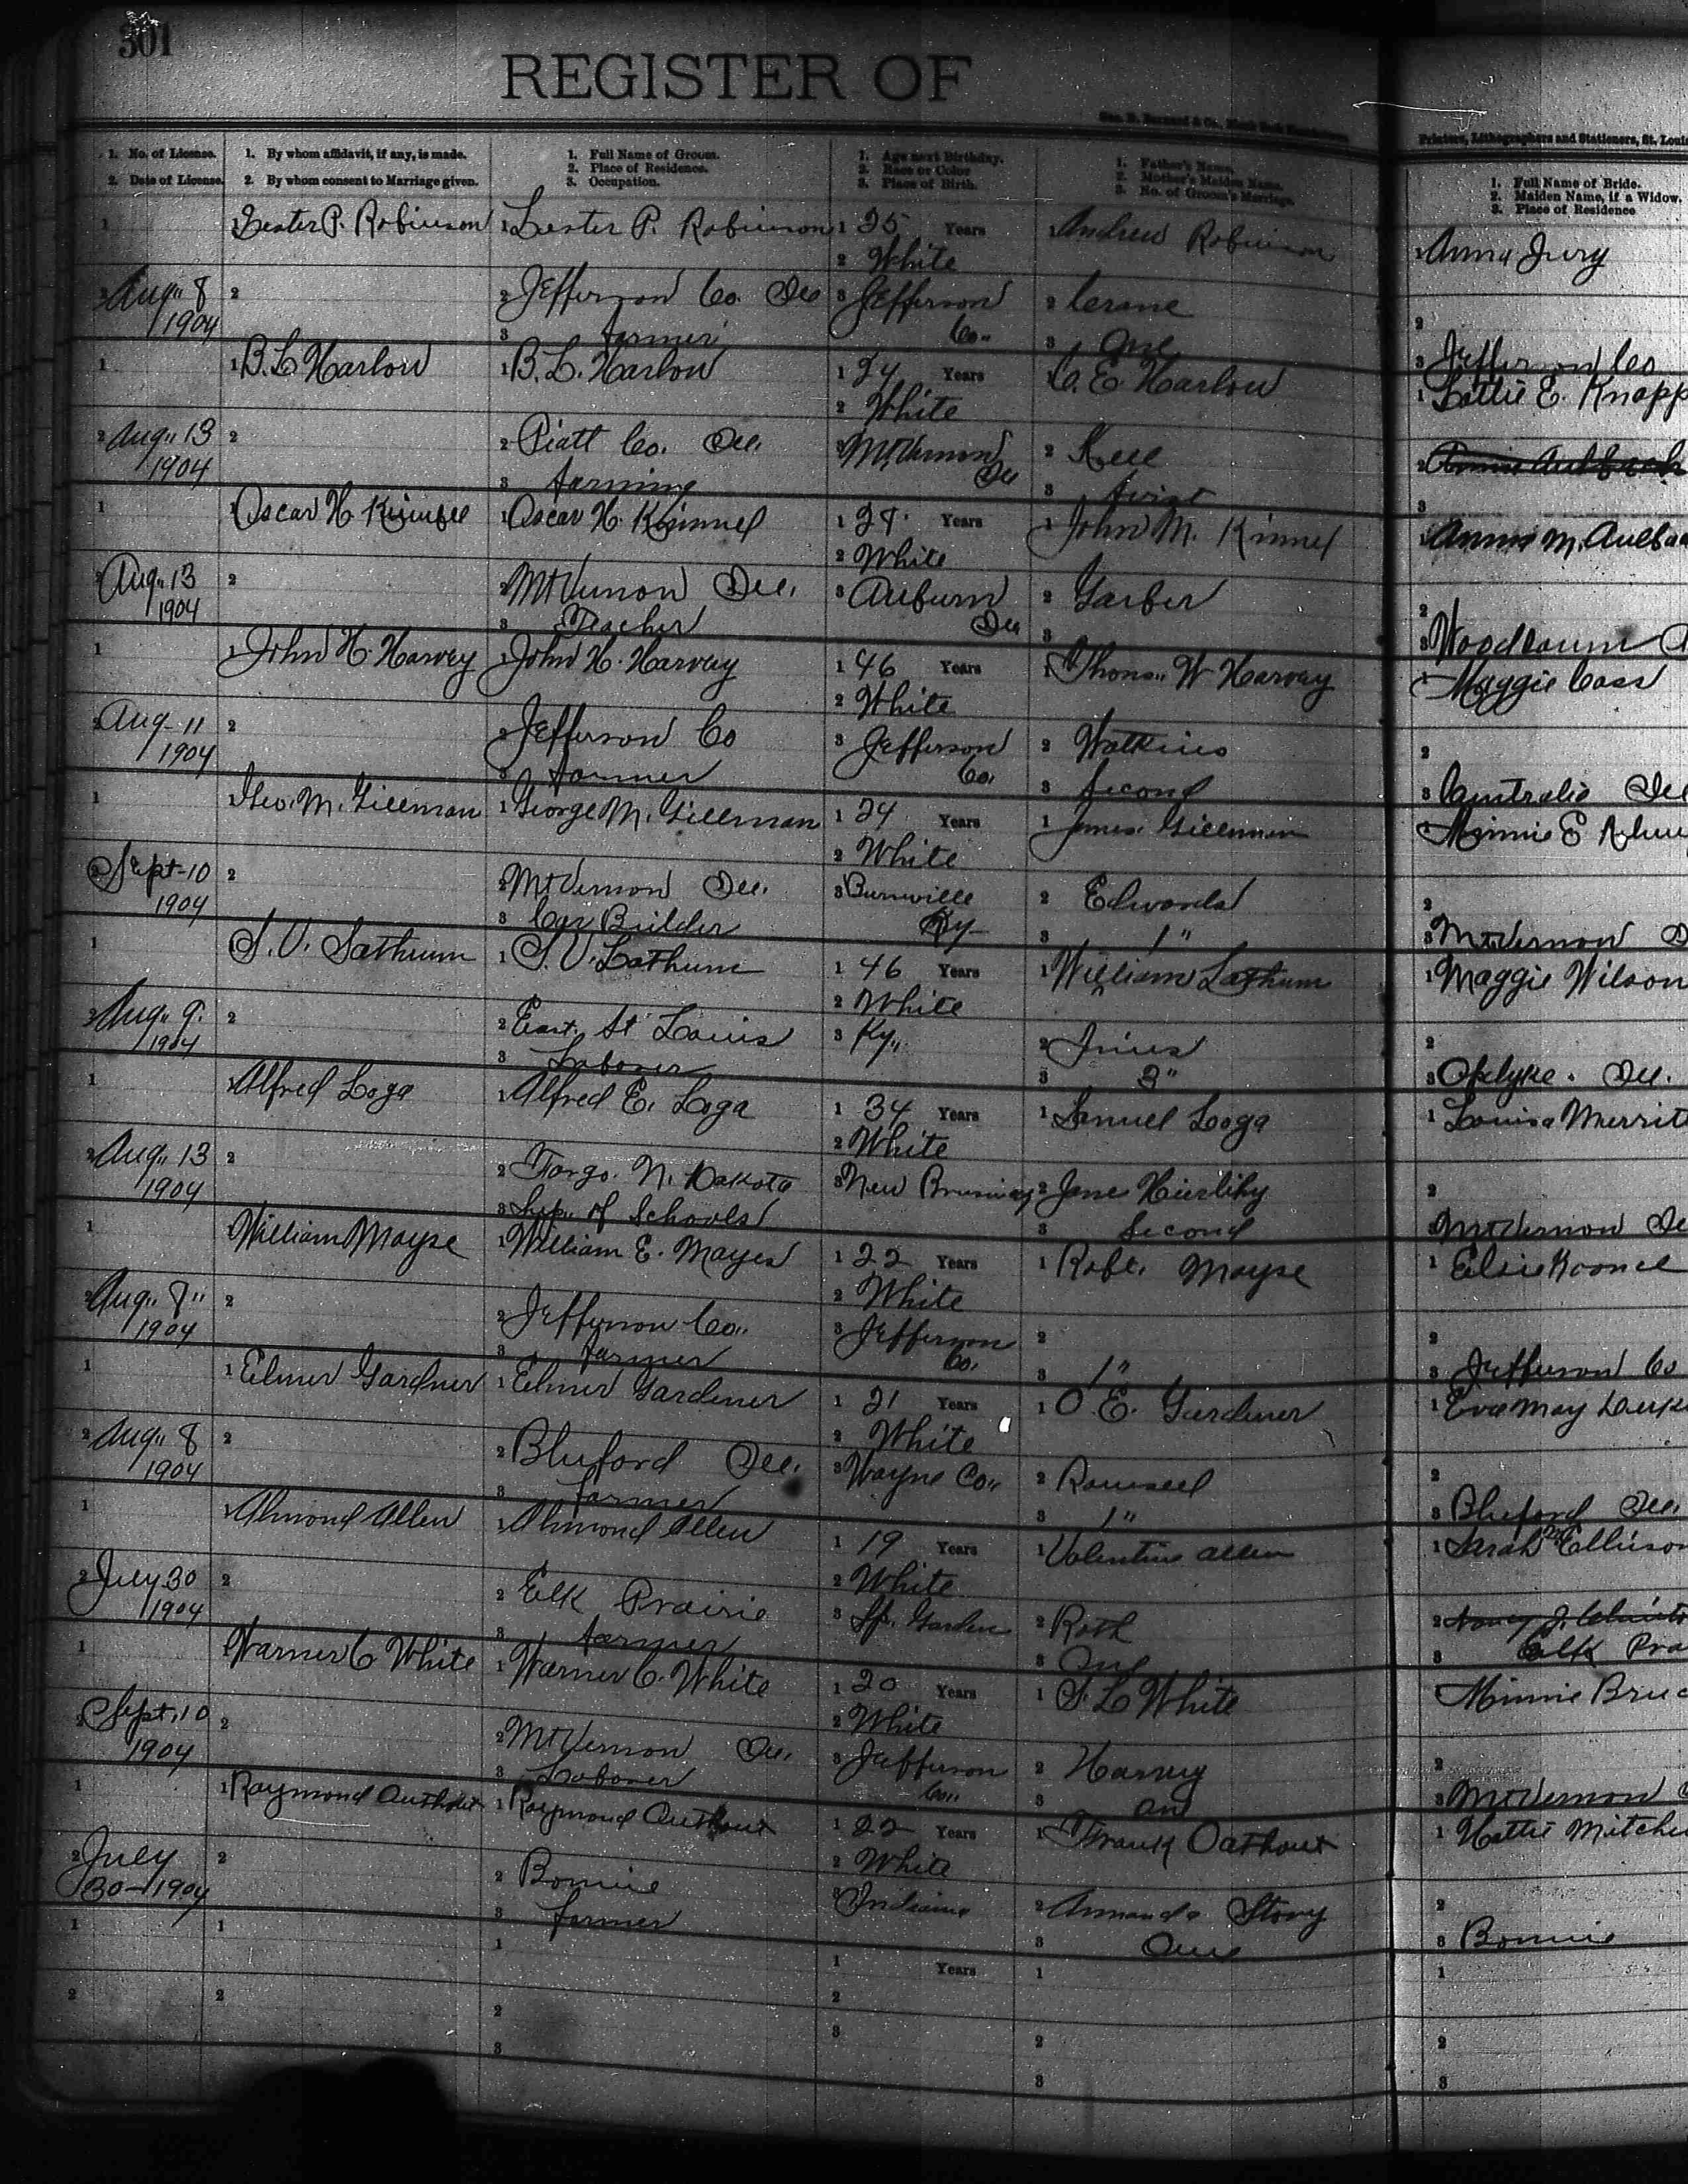 301
REGISTER OF
Printers, Lithographers and Stationers, St. Loui
1. No. of License.
2. Date of License.
1. By whom affidavit, if any, is made.
2. By whom consent to Marriage given.
1. Full Name of Groom.
2. Place of Residence.
3. Occupation.
1. Age next Birthday.
2. Race or Color
3. Place of Birth.
1. Father's Name.
2. Mother's Maiden Name.
3. No. of Groom's Marriage.
1. Full Name of Bride.
2. Maiden Name, if a Widow.
3. Place of Residence
1 1 Lester P. Robinson 1 Lester P. Robinson 1 25 Years 1 Andrew Robinson 1 Anna Jury
2 White
2 Aug. 8 1904 2 2 Jefferson Co. Ill 3 Jefferson Co. 2 Crane 2
3 farmer 3 One 3 Jefferson Co
1 1 B. L. Harlow 1 B. L. Harlow 1 24 Years 1 C. E. Harlow 1 Lottie E. Knapp
2 White
2 Aug. 13 1904 2 2 Piatt Co. Ill. 3 Mt. Vernon Ill 2 Kell 2
3 farming 3 first 3
1 1 Oscar H. 1 Oscar H. Kimmel 1 Years 1 John M. Kimmel 1 Annie M. Aulba
2 White
2 Aug. 13 1904 2 2 Mt Vernon Ill. 3 Auburn Ill 2 Garber 2
3 Teacher 3 3 Woodlawn
1 1 John H. Harvey 1 John H. Harvey 1 46 Years 1 Thomas W Harvey 1 Maggie Cass
2 White
2 Aug 11 1904 2 2 Jefferson Co 3 Jefferson Co. 2 Watkins 2
3 farmer 3 Second 3 Centralia Ill
1 1 Geo. M. Gillman 1 George M. Gillman 1 24 Years 1 James Gillman 1 Minnie E
2 White
2 Sept-10 1904 2 2 Mt Vernon Ill. 3 Ky 2 Edwards 2
3 Car Builder 3 1" 3 Mt Vernon
1 1 S. V. Lathum 1 S. V. Lathum 1 46 Years 1 William Lathum 1 Maggie Wilson
2 White
2 Aug. 9. 1904 2 2 East St Louis 3 Ky. 2 2
3 Laborer 3 3" 3 Opdyke. Ill.
1 1 Alfred Loga 1 Alfred E. Loga 1 34 Years 1 Samuel Loga 1 Louisa Merritt
2 White
2 Aug. 13 1904 2 2 Fargo. N. Dakota 3 New 2 Jane 2
3 Sup. of Schools 3 Second 3 Mt Vernon Ill
1 1 William Mayse 1 William E. Mayes 1 22 Years 1 Robt. Mayse 1 Elsie Koonce
2 White
2 Aug. 8" 1904 2 2 Jefferson Co. 3 Jefferson Co. 2 2
3 farmer 3 1" 3 Jefferson Co
1 1 Elmer Gardner 1 Elmer Gardener 1 21 Years 1 O. E. Gardener 1 Eva May
2 White
2 Aug. 8 1904 2 2 Bluford Ill. 3 Wayne Co. 2 2
3 farmer 3 1" 3 Bluford Ill.
1 1 Almond Allen 1 Almond Allen 1 19 Years 1 Valentine Allen 1 Sarah Ellison
2 White
2 July 30 1904 2 2 Elk Prairie 3 Sp. Garden 2 Roth 2 Nancy J.
3 farmer 3 One 3 Elk Pra
1 1 Warner C White 1 Warner C. White 1 20 Years 1 S. L White 1 Minnie Bruc
2 White
2 Sept. 10 1904 2 2 Mt Vernon Ill. 3 Jefferson Co. 2 Harvey 2
3 Laborer 3 One 3 Mt Vernon
1 1 Raymond Outhout 1 Raymond Outhout 1 22 Years 1 Frank Oathout 1 Hattie Mitche
2 White
2 July 30-1904 2 2 Bonnie 3 Indiana 2 Amanda Story 2
3 farmer 3 One 3 Bonnie
1 1 1 1 Years 1 1
2 2 2 2 2 2
3 3 3 3